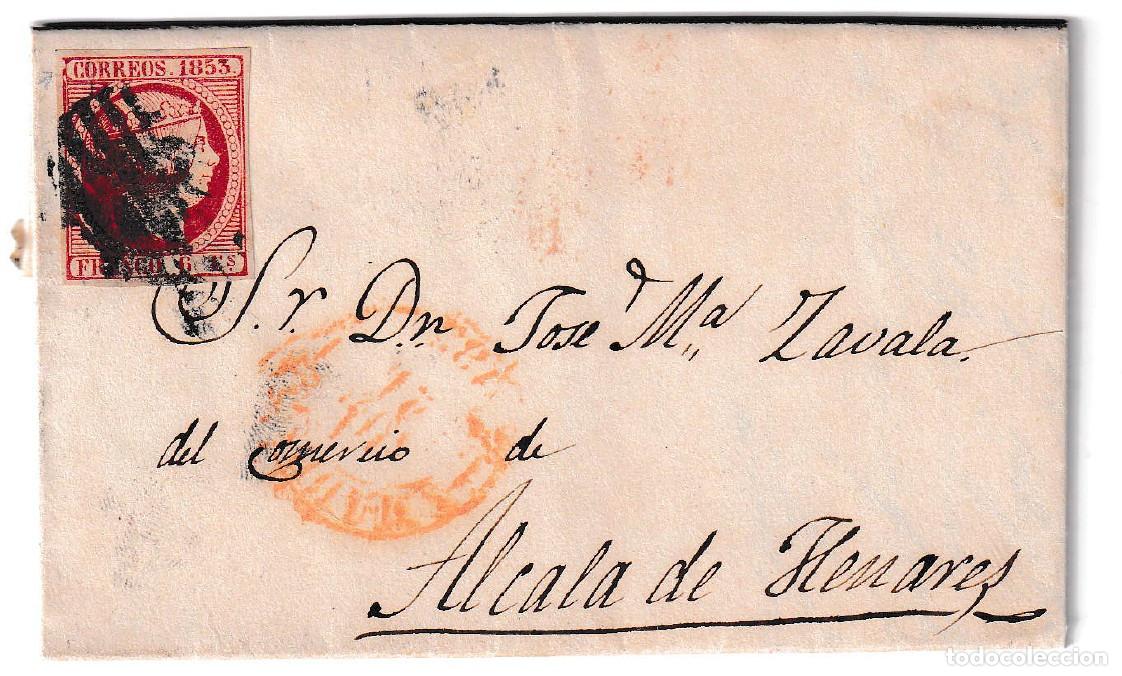 CORREOS. 1853.
FRANCO. 6. Cs
S.r. Dn. Jose Ma Zavala.
del Comercio de
Alcala de Henares
todocoleccion